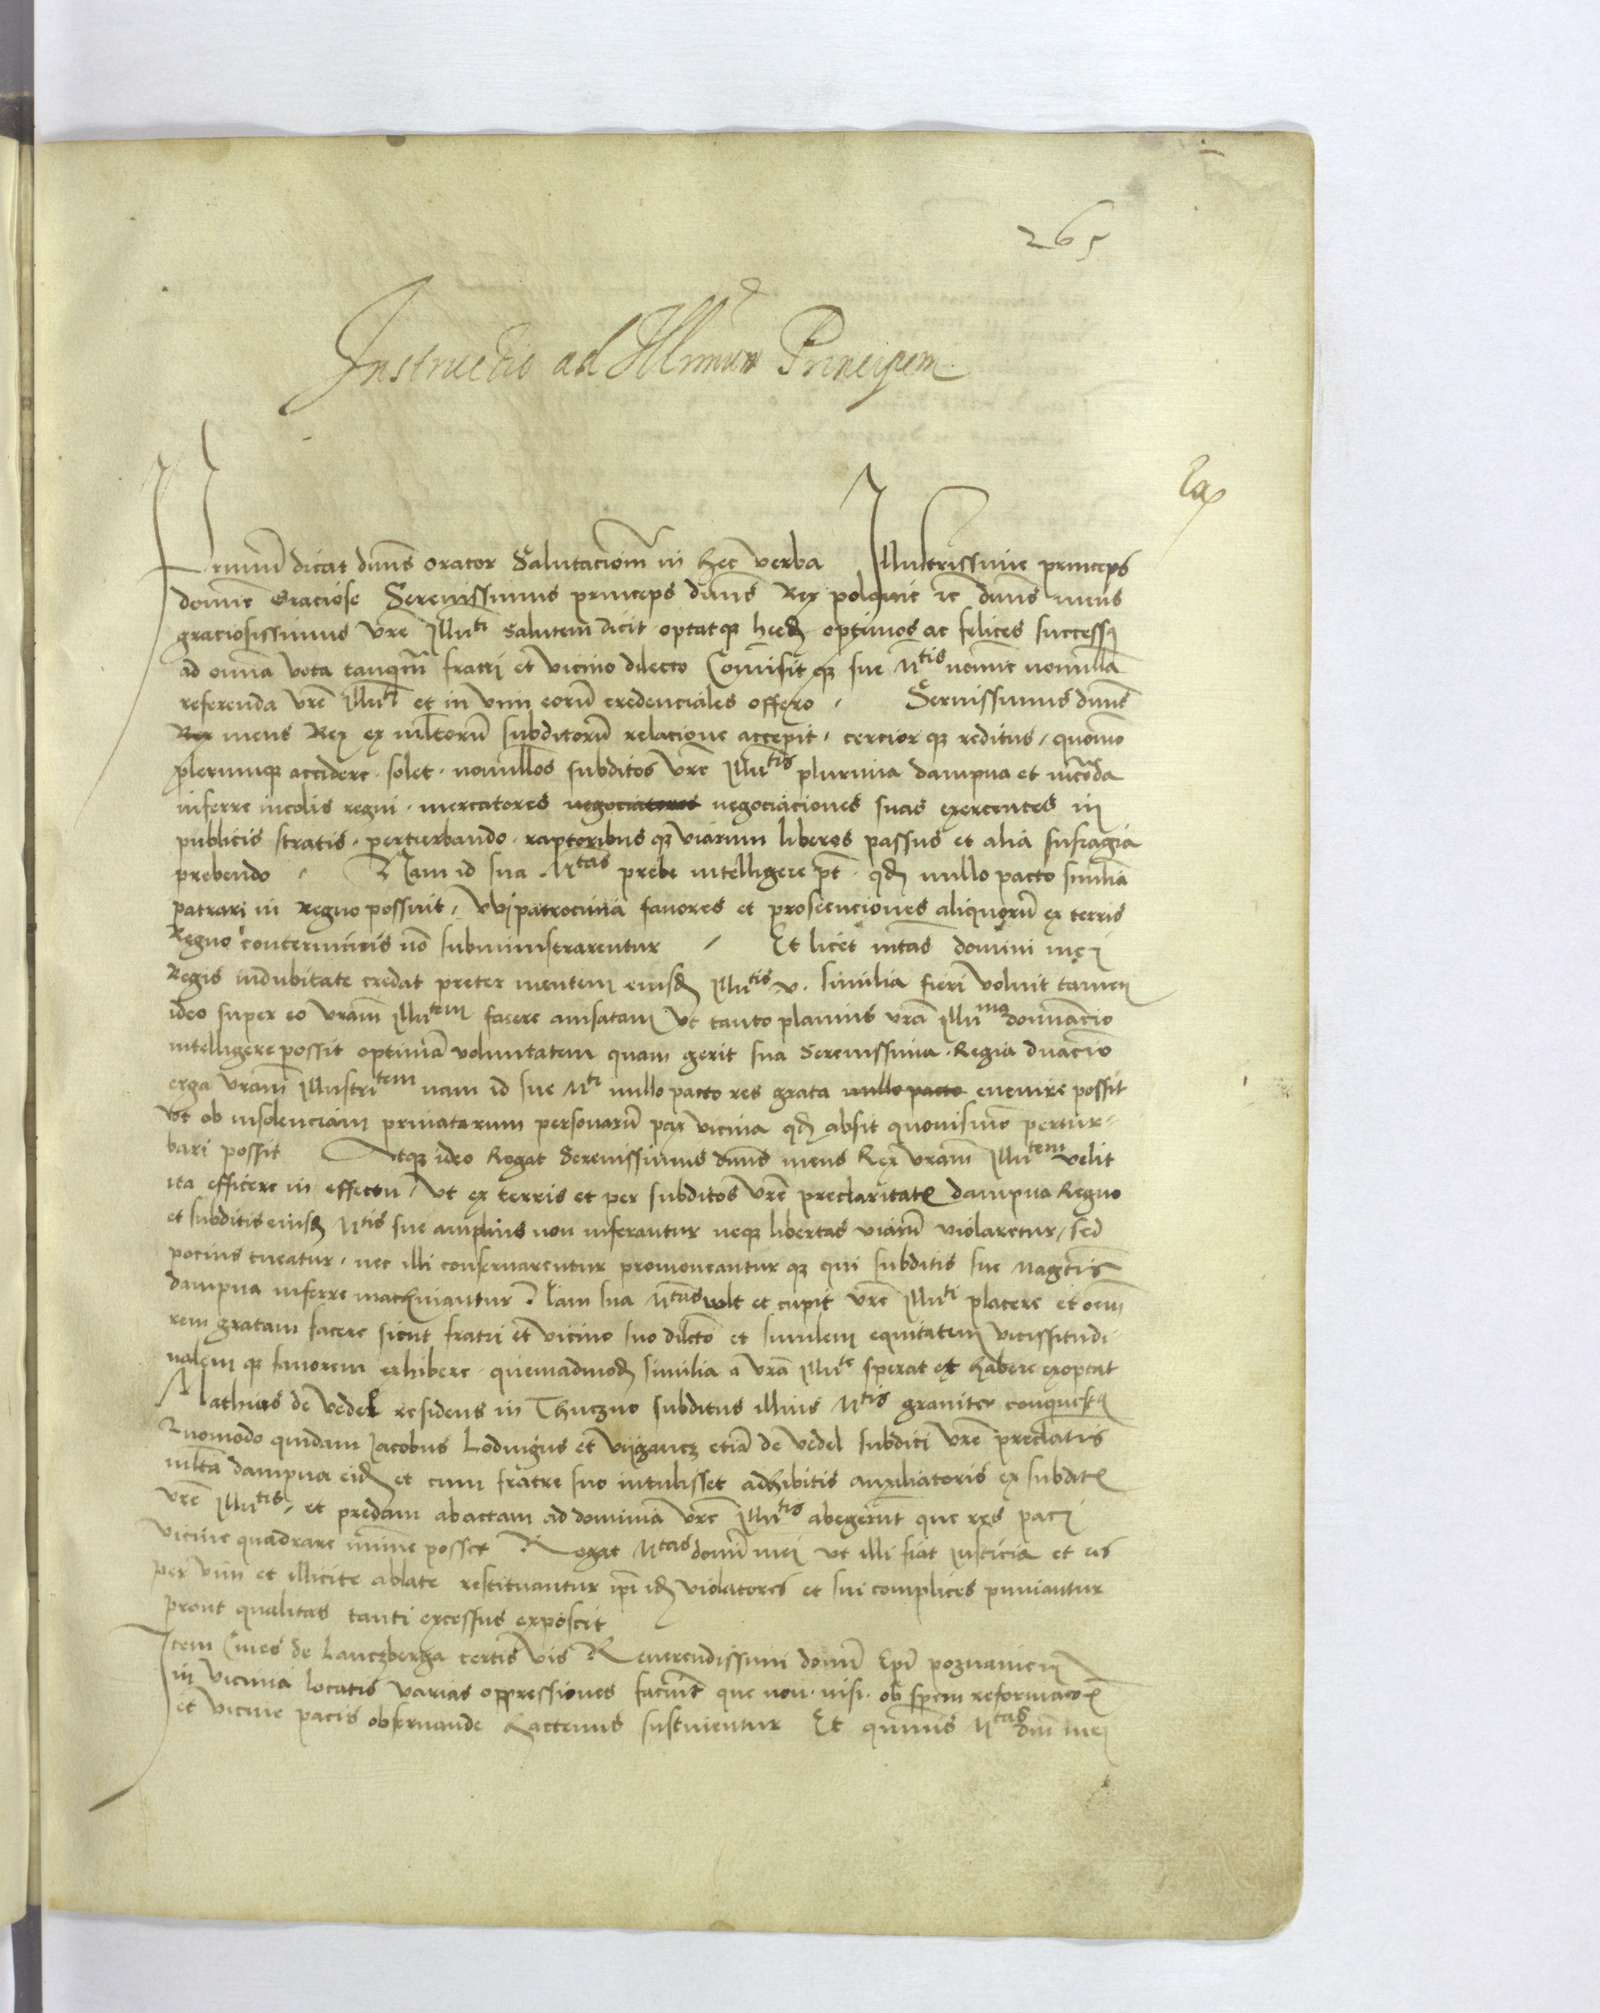 265
Instructio ad Illmum Principem
Ex
Primum dicat dnns orator Salutacionem in hec verba Illustrissime princeps
domine Graciose Serenissimus princeps dnns Rex polonie etc dnns meus
graciosissimus vre Illuti Salutem dicit optatqз optimos ac felices successus
ad omnia vota tanqm fratri et vicino dilecto Comisitqз sue Mtis nomine nonnulla
referenda vre Illuti et in vim eorum credenciales offero Serenissimus dnns
Rex meus Rex ex multorum subditorum relacione accepit, cerciorqз reditus, quomodo
plerumqз accidere solet nonnullos subditos vre Illutis plurima dampna et incomoda
inferre incolis regni mercatores negociatores negociaciones suas exercentes in
publicis stratis perturbando raptoribusqз viarum liberos passus et alia sufragia
prebendo Nam id sua Mtas probe intelligere pt qd nullo pacto similia
patrari in Regno possint, Nisi patrocinia favores et prosecuciones aliquorum ex terris
Regno conterminis non subministrarentur Et licet mtas domini mei
Regis indubitate credat preter mentem eiusd Illutis v. similia fieri voluit tamen
ideo super eo vram Illutem facere avisatam Ut tanto planius vra Illuma dominacio
intelligere possit optimam voluntatem quam gerit sua Serenissima Regia dnacio
erga vram Illustritem nam id sue Mti nullo pacto res grata nullo pacto evenire possit
Ut ob insolenciam privatarum personarum pax vicina qd absit quovismo pertur-
bari possit Atqз ideo Rogat Serenissimus dnns meus Rex vram Illutem velit
ita efficere in effectu, Ut ex terris et per subditos vre preclaritatis dampna Regno
et subditis eiusd Mtis sue amplius non inferantur neqз libertas viarum violaretur, sed
pocius tueatur, nec illi conservarentur promoveanturqз qui subditis sue Magtis
dampna inferre machinantur Nam sua Mtas wlt et cupit vre Illuti placere et omem
rem gratam facere sicut fratri et vicino suo dilecto et similem equitatem vicissitudi-
nalemqз favorem exhibere quemadmod similia a vra Illute sperat et habere exoptat
Mathias de Vedel residens in Thuczno subditus illius Mtis graviter conquestus
Quomodo quidam Jacobus Lodvigus et Vijgancz etiam de Vedel subditi vre preclatis
multa dampna eid et cum fratre suo intulisset adhibitis auxiliatoris ex subditis
vre Illutis, et predam abactam ad dominia vre Illutis abegerunt que res paci
vicine quadrare minime posset Rogat Mtas domini mei ut illi fiat Justicia et eis
per vim et illicite ablate restituantur ipi id violatores et sui complices puniantur
prout qualitas tanti excessus exposcit
Item Cives de Lanczberga certis vis Reverendissimi domini Epi poznanien
in vicinia locatis varias oppressiones faciunt que non nisi ob spem reformacois
et vicine pacis observande hactenus sustinentur Et quamvis Mtas dni mei